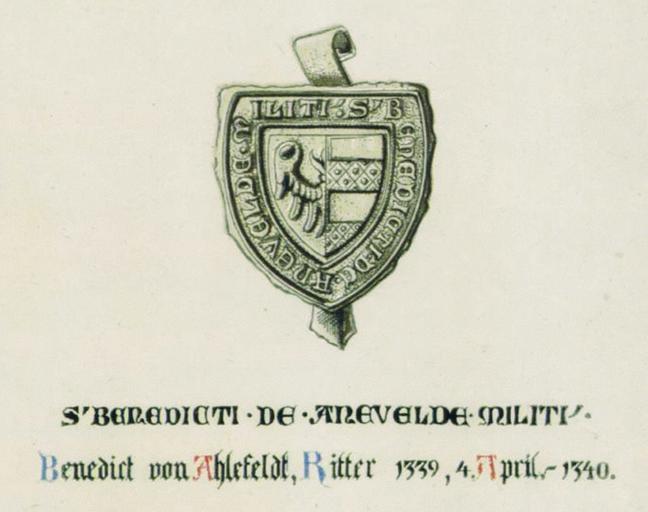 S'BENEDICTI·DE·ANEVELDE·MILITI'·
S'BENEDICTI·DE·ANEVELDE·MILITI'·
Benedict von Ahlefeldt, Ritter 1339, 4. April.- 1340.